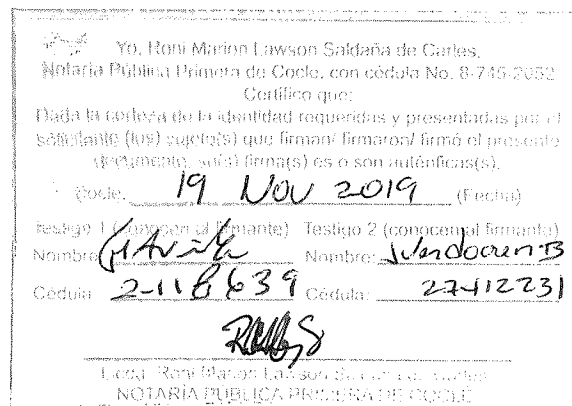 Yo, Roni Marion Lawson Saldaña de Caries,
Notaria Pública Primera de Cocle, con cédula No. 8-745-2052
Certifico que:
Dada la certeza de la identidad requeridas y presentadas por el
solicitante (los) sujeto(s) que firman/ firmaron/ firmó el presente
documento, su(s) firma(s) es o son auténticas(s).
Cocle, 19 Nov 2019 (Fecha)
Testigo 1 (conocen al firmante) Testigo 2 (conocen al firmante)
Nombre: Nombre:
Cédula: 2-118639 Cédula: 27412231
Licda. Roni Marion Lawson
NOTARÍA PÚBLICA PRIMERA DE COCLÉ